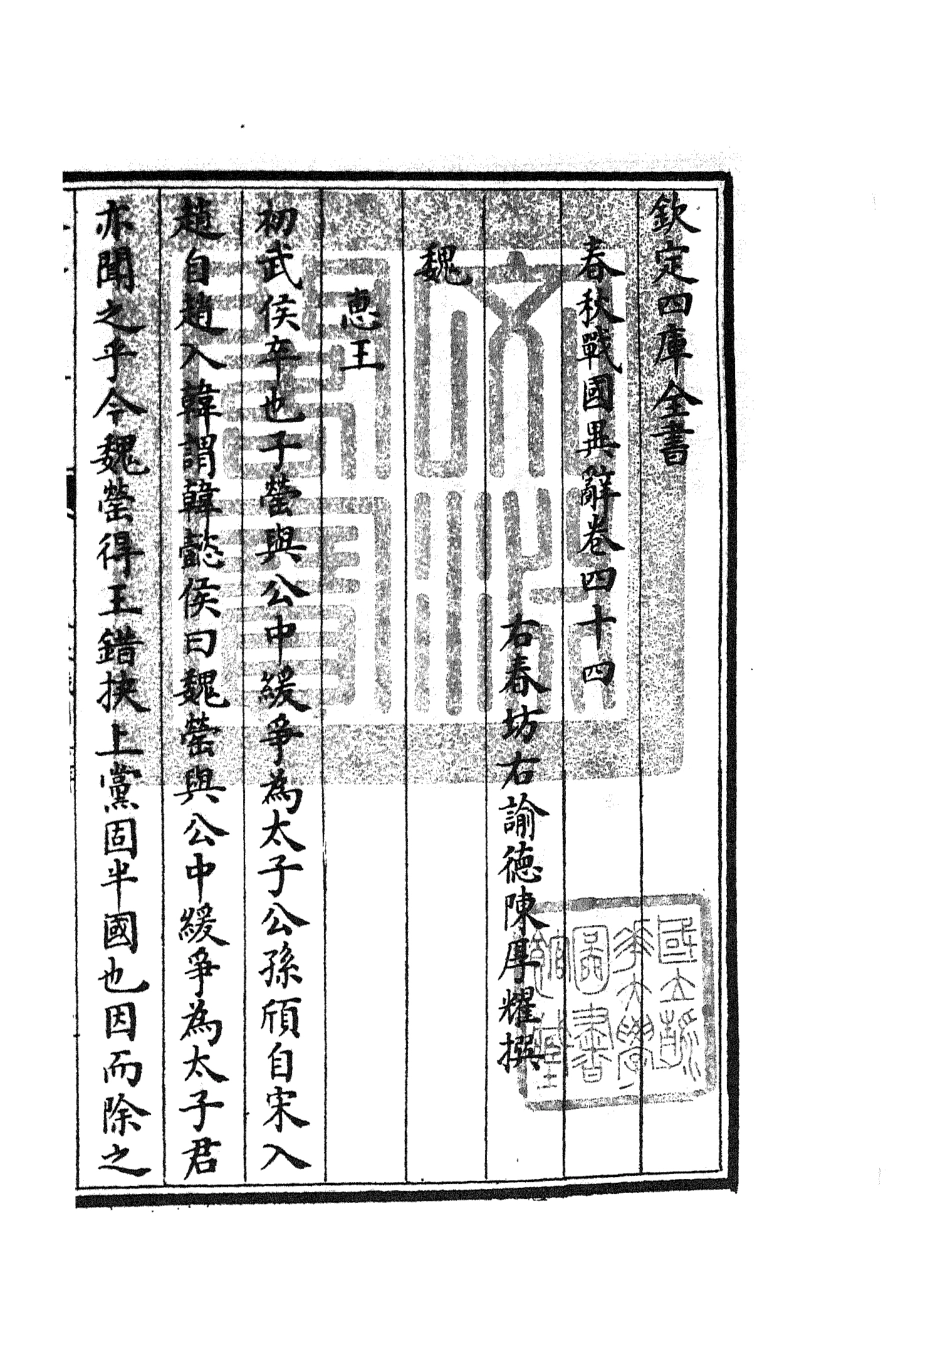 欽定四庫全書
春秋戰國異辭卷四十四
右春坊右諭德陳厚耀撰
魏
惠王
初武侯卒也子罃與公中緩爭為太子公孫頎自宋入
趙自趙入韓謂韓懿侯曰魏罃與公中緩爭為太子君
亦聞之乎今魏罃得王錯挾上黨固半國也因而除之